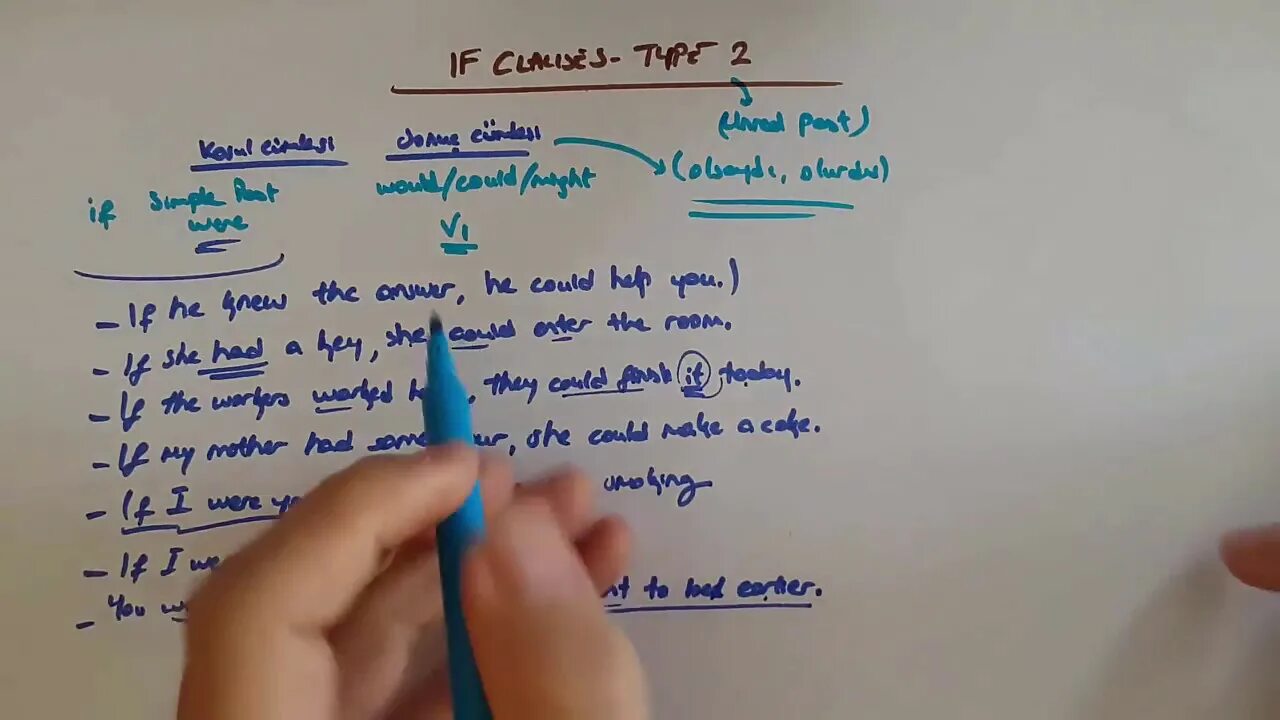 IF CLAUSES - TYPE 2
(Unreal past)
Koşul cümlesi
would/could/might
if Simple Past
were
V1
- If he knew the answer, he could help you.)
- If she had a key, she could enter the room.
- If the workers worked they could finish it today.
- If my mother had some she could make a cake.
- If I were smoking
- If I
- You to bed earlier.